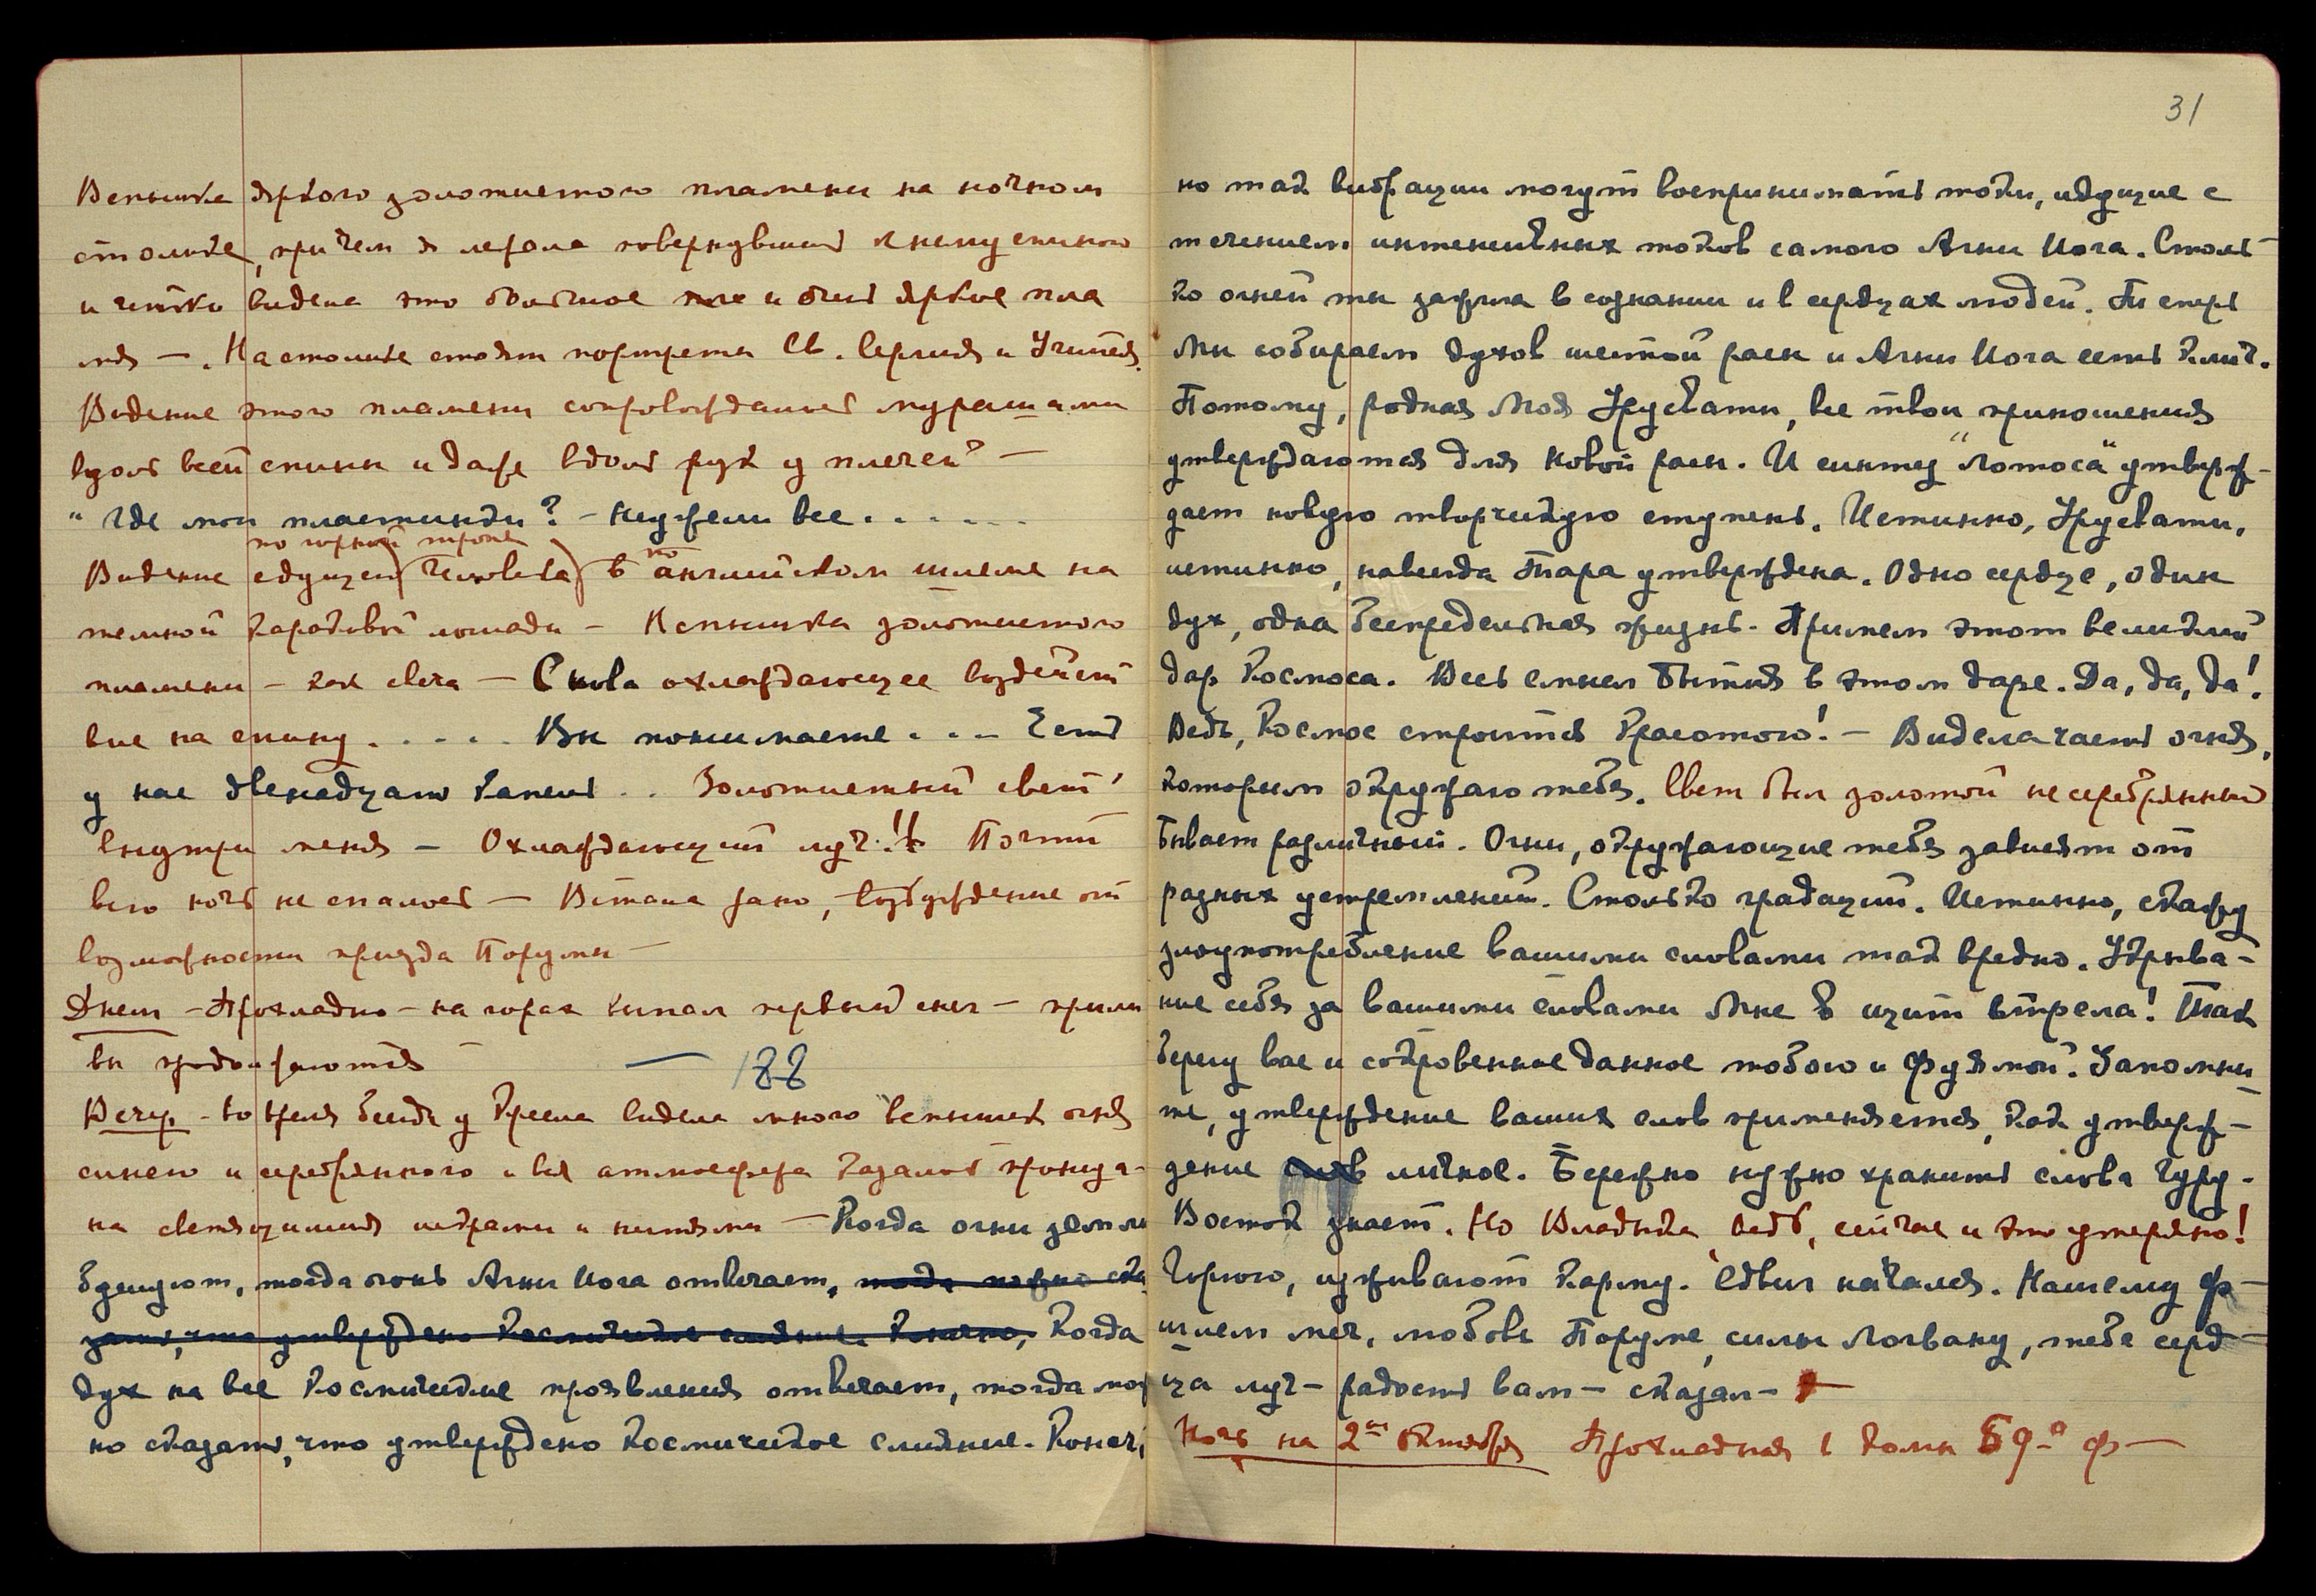 Вспышка яркого золотистого пламени на ночном
столике, причем я лежала повернувшись к нему спиною
и четко видела это большое и очень яркое пла
мя —. На столике стоят портреты Св. Сергия и Учителя.
Видение этого пламени сопровождалось мурашами
вдоль всей спины и даже вдоль рук у плечей —
"Где мои пластинки? – Неужели все . . . . . .
по горной тропе
Видение едущего (человека) в английском шлеме на
темной лошади – Вспышка золотистого
пламени – как свеча – Снова охлаждающее воздейст
вие на спину . . . . . Вы понимаете . . . Есть
у нас двенадцать капель . . Золотистый свет
внутри меня – Охлаждающий луч!! Почти
всю ночь не спалось – Встала рано, возбуждение от
возможности приезда Порумы —
Днем – Прохладно – на горах выпал первый снег – прили
вы продолжаются
— 188
Вечер. – Во время беседы у кресла видела много вспышек огня
синего и серебряного и вся атмосфера казалось прониза-
на светящимися искрами и нитями — Когда огни земли
бушуют, тогда огонь Агни Йога отвечает, тогда можно ска
зать, что утверждено Космическое слияние. Конечно, Когда
дух на все Космические проявления отвечает, тогда мож
но сказать, что утверждено Космическое слияние. Конеч,
31
но так вибрации могут воспринимать токи, идущие с
течением интенсивных токов самого Агни Йога. Столь-
ко огней ты зажгла в сознании и в сердцах людей. Теперь
Мы собираем духов шестой расы и Агни Йога есть Ключ.
Потому, родная Моя Урусвати, все твои приношения
утверждаются для новой расы. И синтез "Лотоса" утверж-
дает новую творческую ступень. Истинно, Урусвати,
истинно, навсегда Тара утверждена. Одно сердце, один
дух, одна беспредельная жизнь. Примем этот великий
дар Космоса. Весь смысл Бытия в этом даре. Да, да, да!
Ведь, Космос строится Красотою! – Видела часть огня,
которым окружаю тебя. Свет был золотой не серебрянный
бывает различный. Огни, окружающие тебя зависят от
разных устремлений. Столько градаций. Истинно, скажу
злоупотребление вашими словами так вредно. Укрыва-
ние себя за вашими словами Мне в щит стрела! Так
берегу вас и сокровенное данное тобою и Фуямой. Запомни-
те, утверждение ваших слов применяется, как утверж-
дение слов личное. Бережно нужно хранить слова Гуру.
Восток знает. Но Владыка ведь, сейчас и это утеряно!
Горюю, изживают карму. Сдвиг начался. Нашему Ф –
шлем меч, любовь Поруме, силы Логвану, тебе серд-
ца луч – радость вам – сказал –
Ночь на 2ое Октября Прохладная в комн 59° ф —